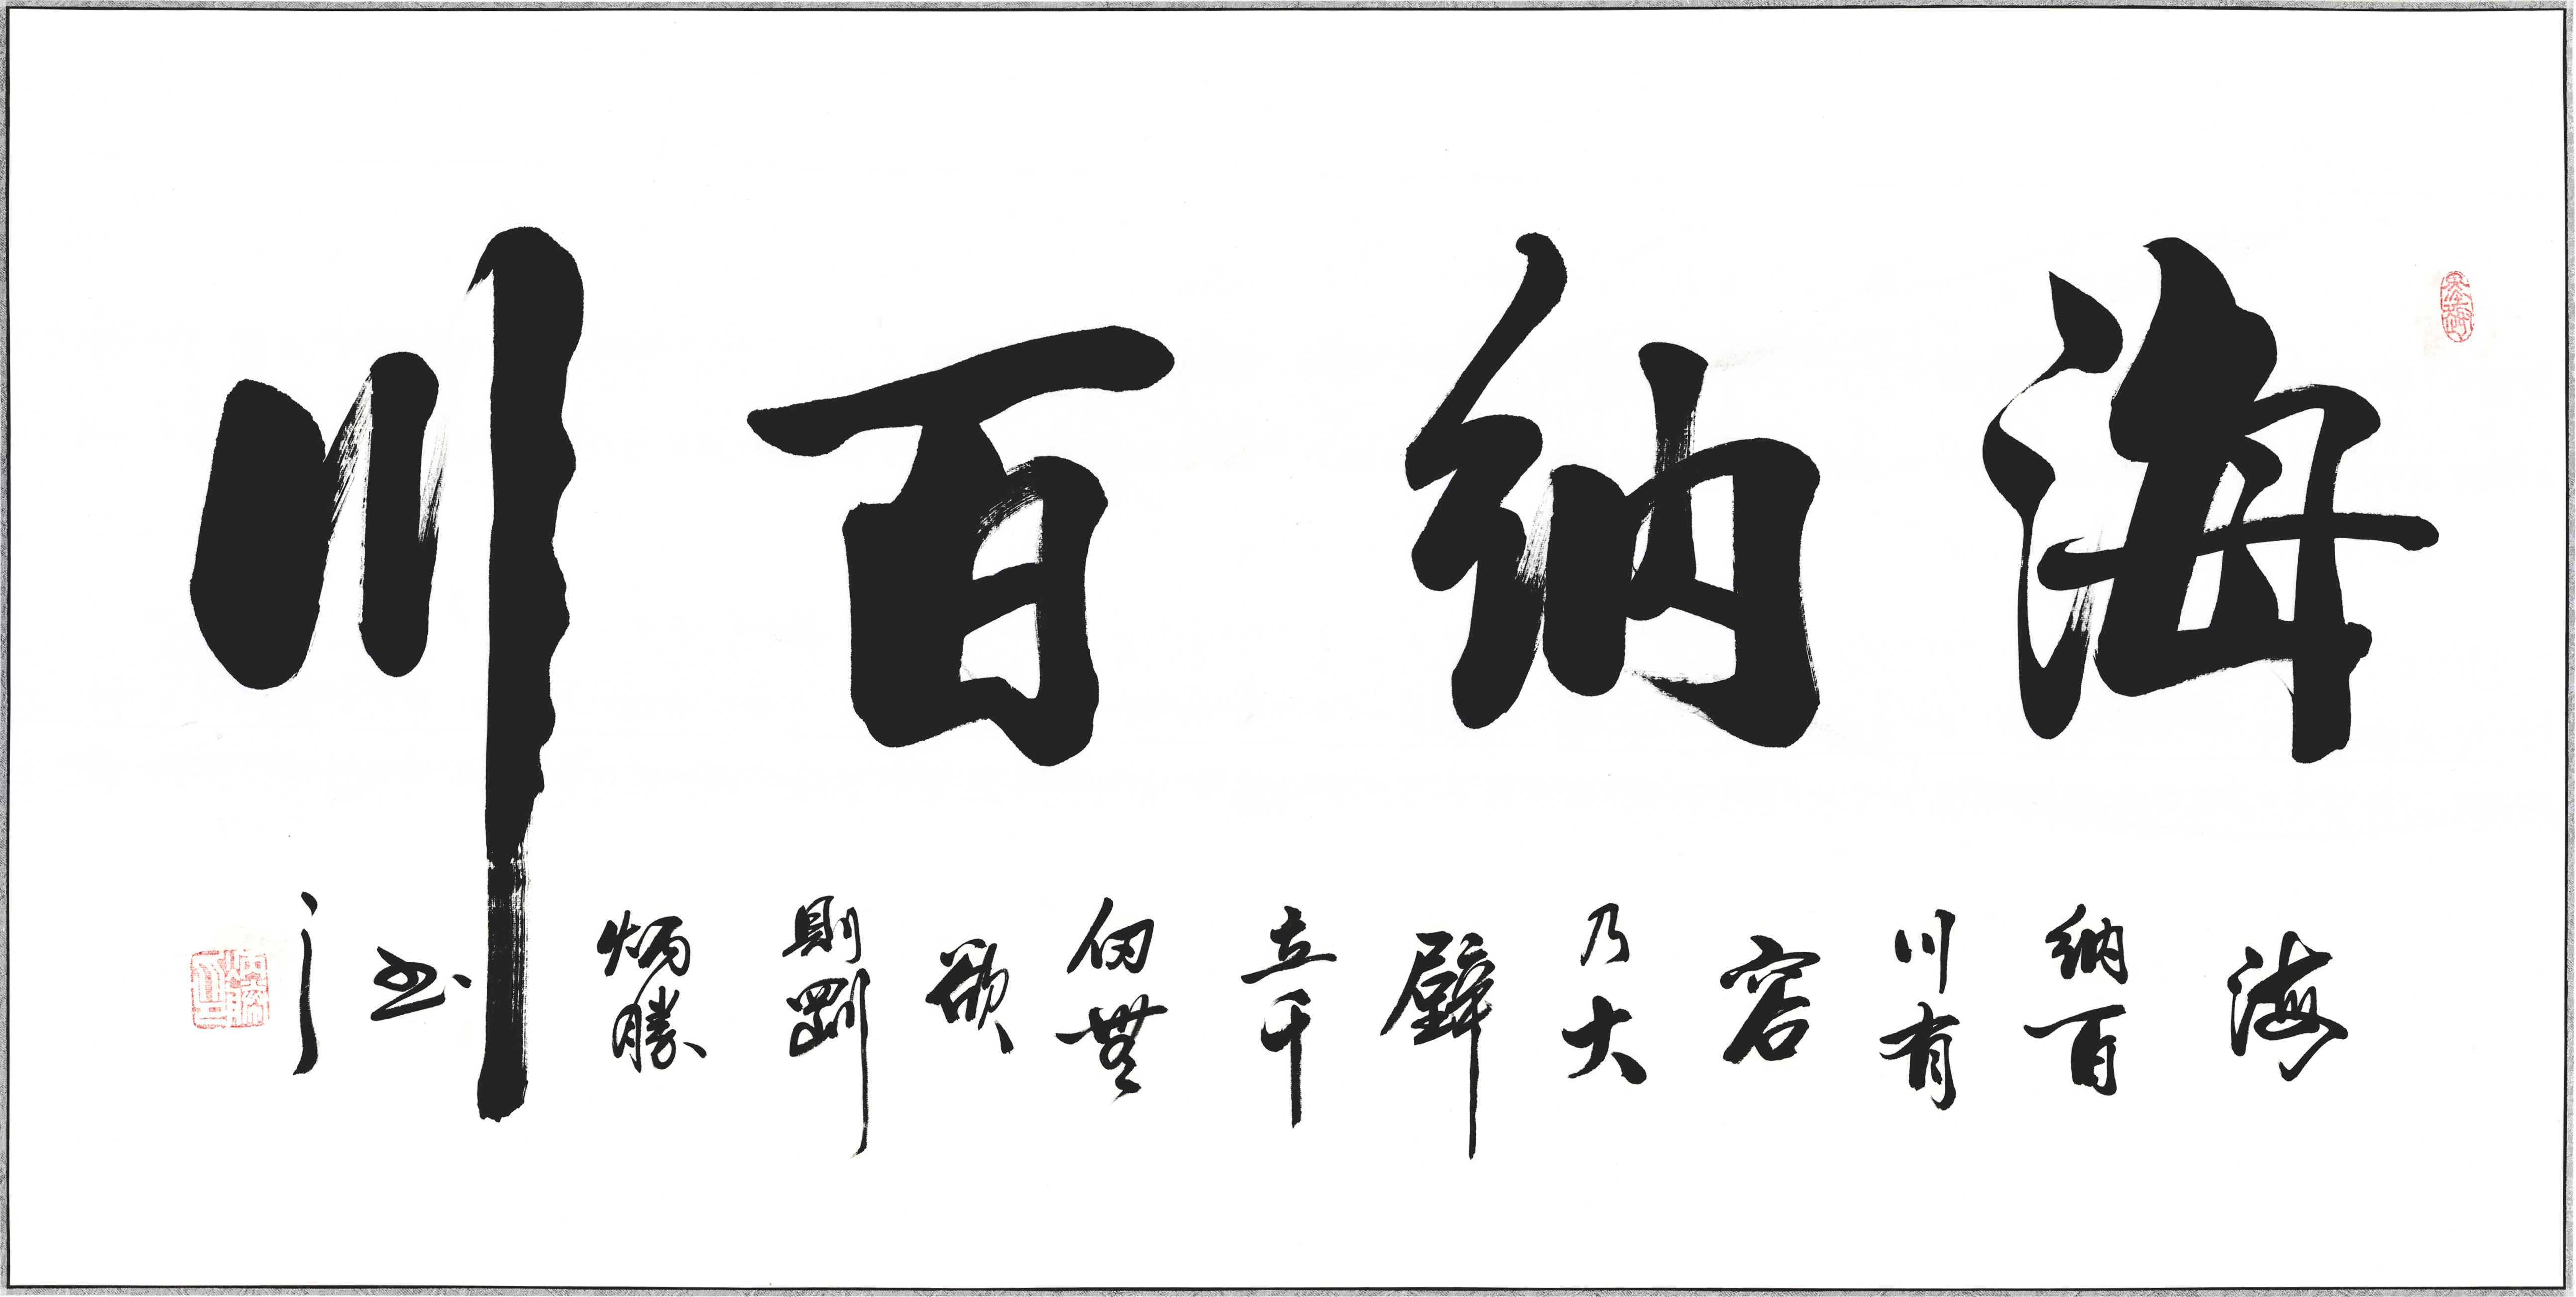 海納百川
海納百川有容乃大壁立千仞無欲則剛炳勝书